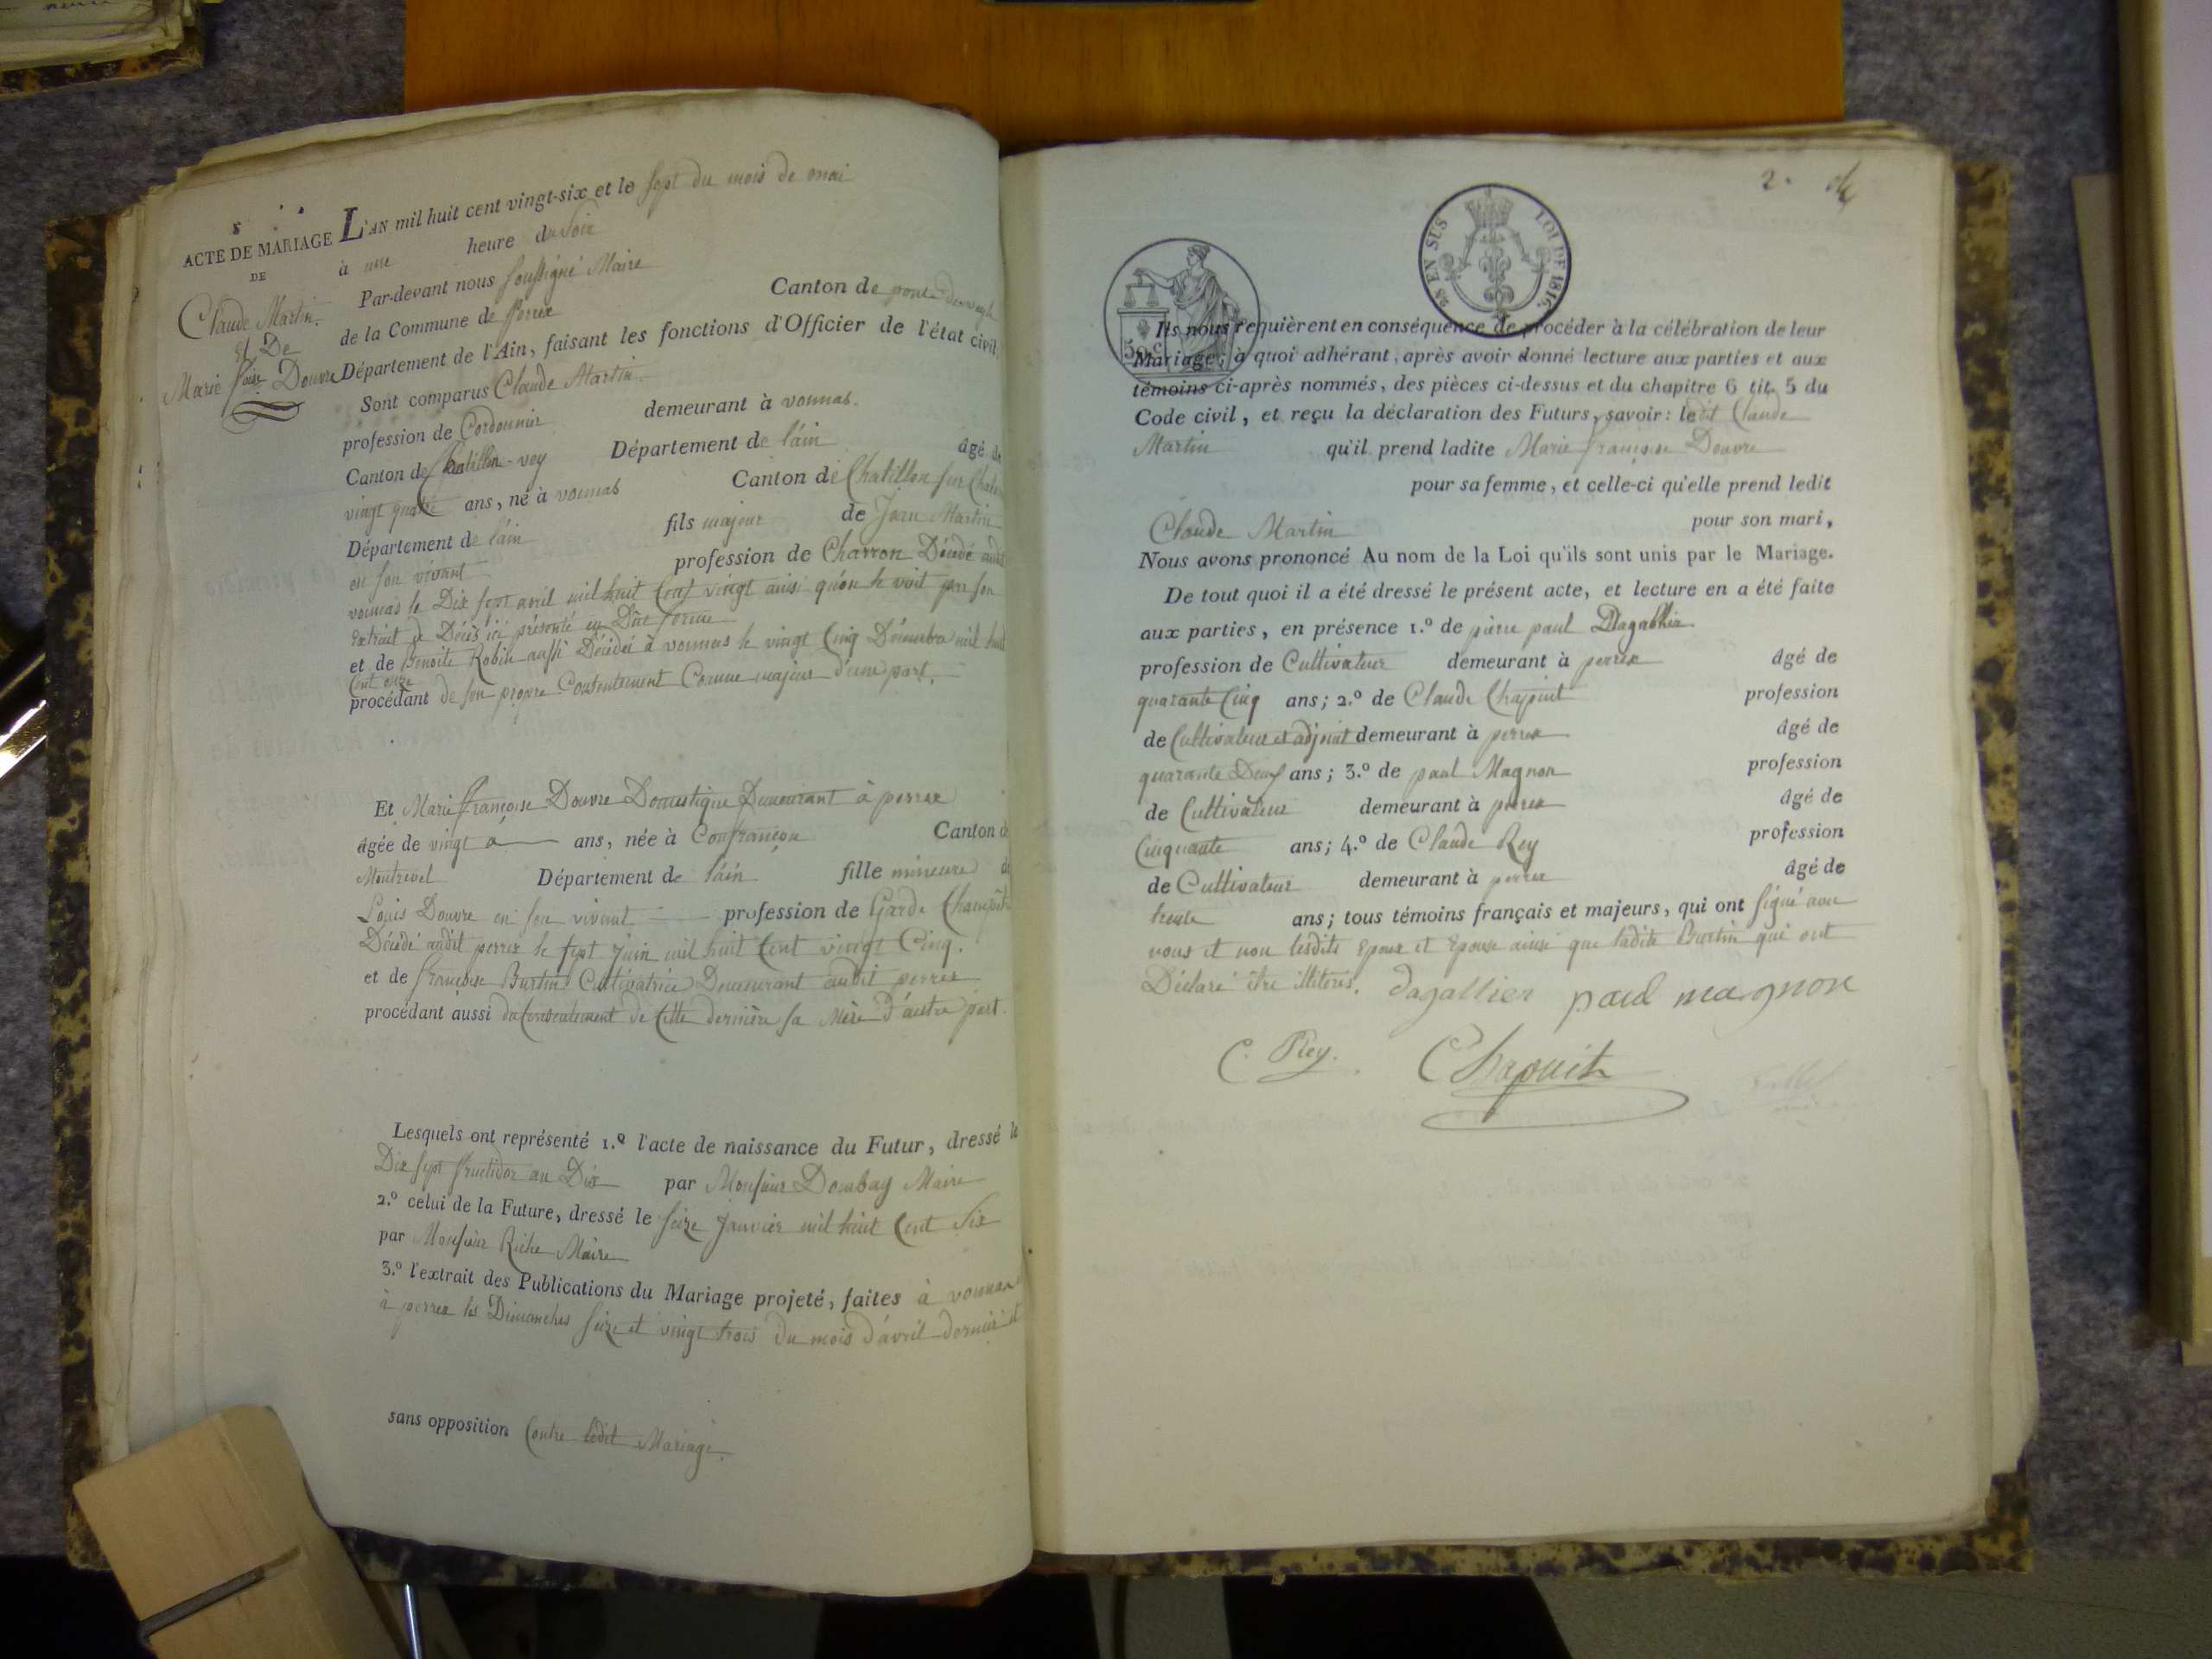 ACTE DE MARIAGE
DE
Claude Martin.
Et De
Marie foise Douvre
L'AN mil huit cent vingt-six et le sept du mois de mai
à une heure du soir
Par-devant nous soussigné Maire
de la Commune de perrex Canton de pont-de-veyle
Département de l'Ain, faisant les fonctions d'Officier de l'état civil,
Sont comparus Claude Martin
profession de Cordonnier demeurant à vonnas.
Canton de Chatillon-vey Département de l'áin âgé de
vingt quatre ans, né à vonnas Canton de Chatillon sur Chala
Département de l'áin fils majeur de Jean Martin
en son vivant profession de Charron Décédé audit
vonnas le Dix sept avril mil huit Cent vingt ainsi qu'on le voit par son
extrait de Décès ici présenté en Dûe forme
et de Benoite Robin aussi Décédée à vonnas le vingt Cinq Décembre mil huit
Cent onze
procédant de son propre Consentement Comme majeur d'une part.
Et Marie françoise Douvre Domestique Demeurant à perrex
âgée de vingt ans, née à Confrançon Canton de
Montrevel Département de l'áin fille mineure de
Louis Douvre en son vivant profession de Garde Champêt
Décédé audit perrex le sept juin mil huit Cent vingt Cinq.
et de françoise Burtin Cultivatrice Demeurant audit perrex
procédant aussi du Consentement de Cette dernière sa Mère d'autre part.
Lesquels ont représenté 1.º l'acte de naissance du Futur, dressé le
Dix sept fructidor an Dix par Monsieur Dombay Maire
2.º celui de la Future, dressé le seize janvier mil huit Cent Six
par Monsieur Riche Maire
3.º l'extrait des Publications du Mariage projeté, faites à vonnas
à perrex les Dimanches seize et vingt trois du mois d'avril dernier et
sans opposition Contre ledit Mariage.
2.
25 EN SUS LOI DE 1816.
50 c.
Ils nous requièrent en conséquence de procéder à la célébration de leur
Mariage; à quoi adhérant, après avoir donné lecture aux parties et aux
témoins ci-après nommés, des pièces ci-dessus et du chapitre 6 tit. 5 du
Code civil, et reçu la déclaration des Futurs, savoir: ledit Claude
Martin qu'il prend ladite Marie françoise Douvre
pour sa femme, et celle-ci qu'elle prend ledit
Claude Martin pour son mari,
Nous avons prononcé Au nom de la Loi qu'ils sont unis par le Mariage.
De tout quoi il a été dressé le présent acte, et lecture en a été faite
aux parties, en présence 1.º de pierre paul Dagallier
profession de Cultivateur demeurant à perrex âgé de
quarante Cinq ans; 2.º de Claude Chapuit profession
de Cultivateur et adjoint demeurant à perrex âgé de
quarante Deux ans; 3.º de paul Magnon profession
de Cultivateur demeurant à perrex âgé de
Cinquante ans; 4.º de Claude Rey profession
de Cultivateur demeurant à perrex âgé de
trente ans; tous témoins français et majeurs, qui ont signé avec
nous et non lesdits Epoux et Epouse ainsi que ladite Burtin qui ont
Déclaré être illiterés. dagallier paul magnon
C. Rey. Chapuit